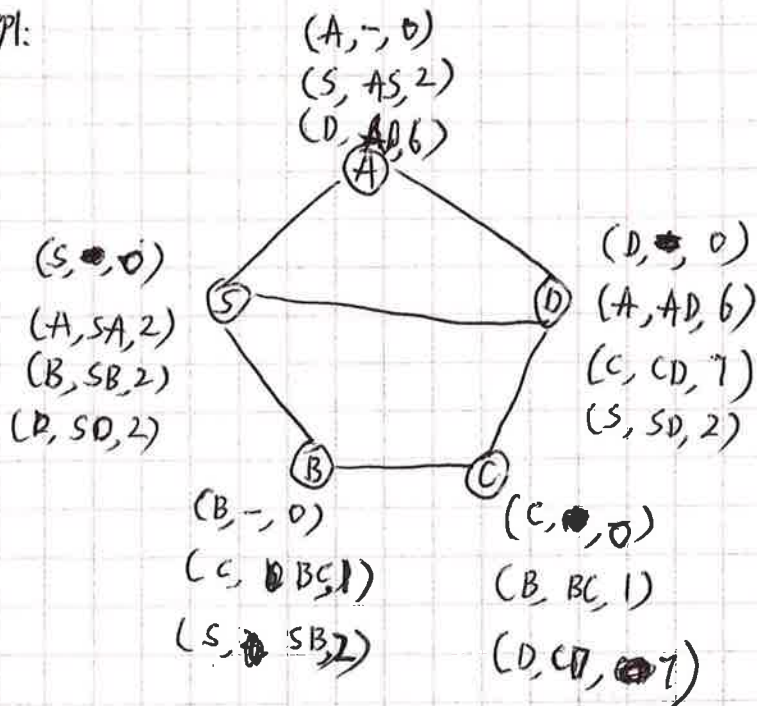 (A, -, 0)
(S, AS, 2)
(D, AD, 6)
A
(S, , 0)
(A, SA, 2)
(B, SB, 2)
(D, SD, 2)
S
D
(D, , 0)
(A, AD, 6)
(C, CD, 7)
(S, SD, 2)
B
C
(B, -, 0)
(C, BC, 1)
(S, SB, 2)
(C, , 0)
(B, BC, 1)
(D, CD, 7)